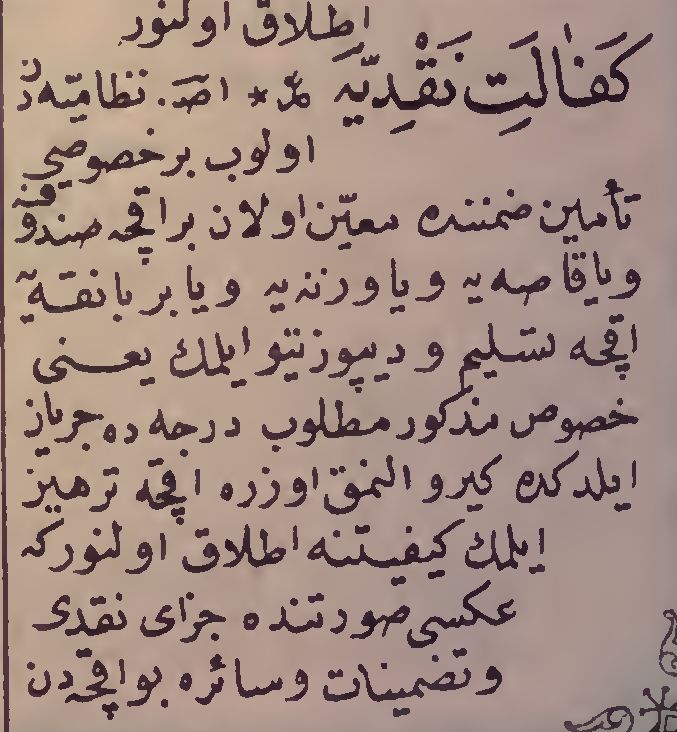 اطلاق اولنور
كَفَالَتِ نَقْدِيَّه مر * اصـ . نظاميّه‌دن
اولوب برخصوصى
تأمين ضمننده معيّن اولان براقچه صندوقنه
ويا قاصه‌يه ويا وزنه‌يه ويا بر بانقه‌يه
اقچه تسليم و ديپوزيتو ايلمك يعنى
خصوص مذكور مطلوب درجه‌ده جريان
ايلدكده كيرو النمق اوزره اقچه ترهين
ايلمك كيفيتنه اطلاق اولنور كه
عكسى صورتنده جزاى نقدى
وتضمينات وسائره بو اقچه‌دن